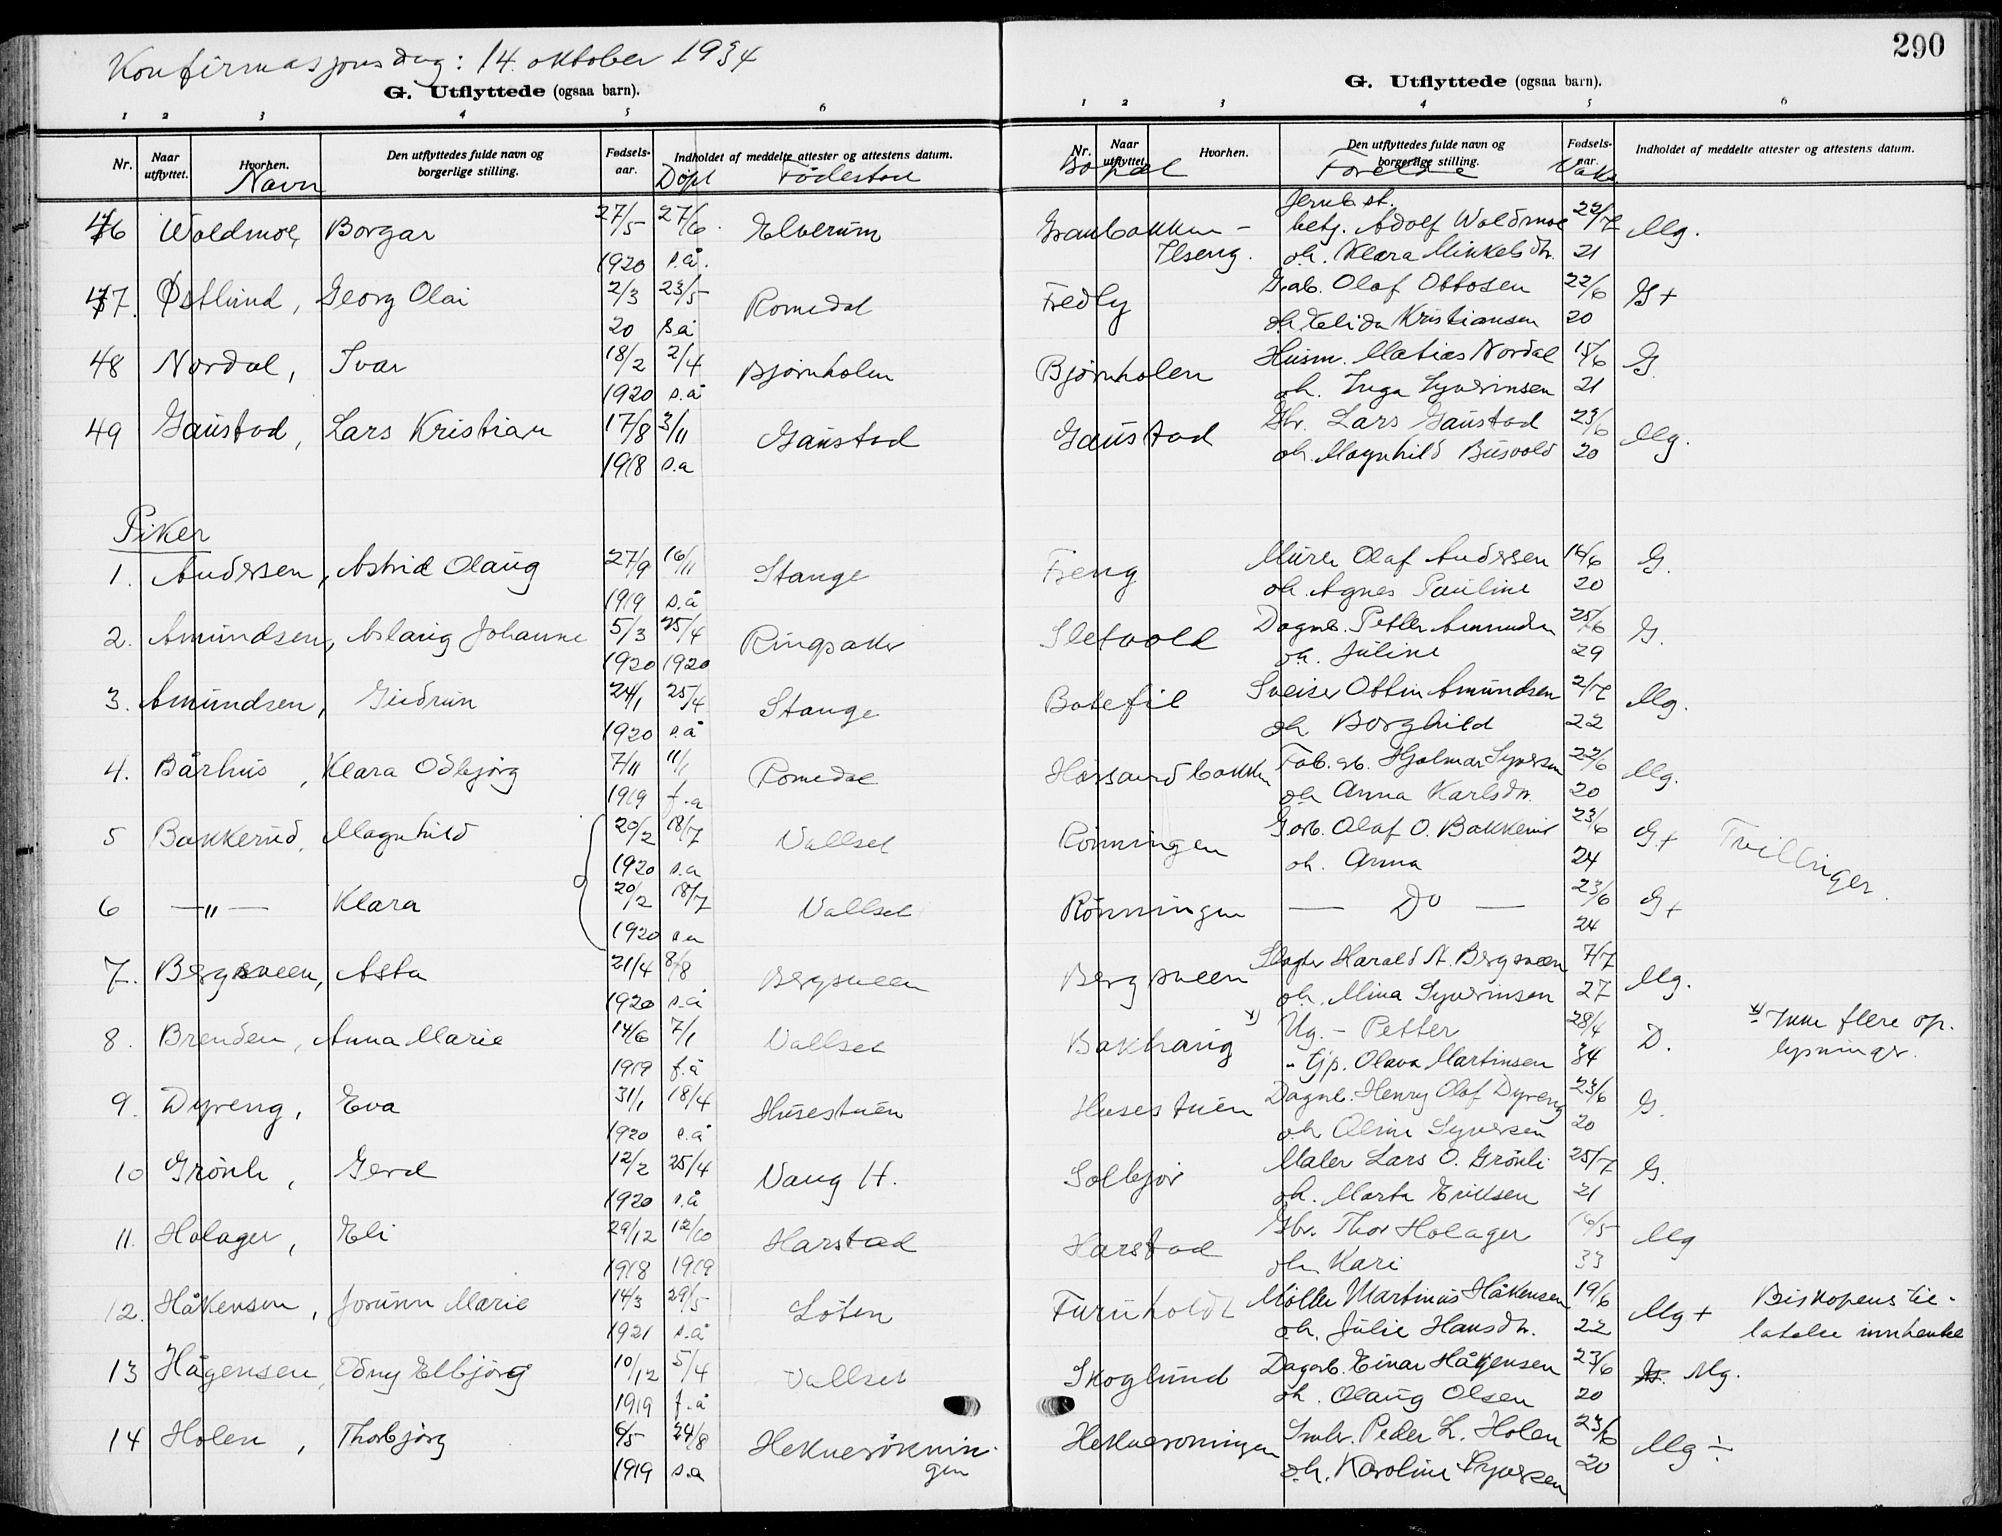 Konfirmasjonsdag: 14. oktober 1934
290
G. Utflyttede (ogsaa barn).
G. Utflyttede (ogsaa barn).
1 2 3 4 5 6
1 2 3 4 5 6
Nr. Naar utflyttet. Hvorhen. Den utflyttedes fulde navn og borgerlige stilling. Fødsels-aar. Indholdet af meddelte attester og attestens datum.
Nr. Naar utflyttet Hvorhen. Den utflyttedes fulde navn og borgerlige stilling. Fødsels-aar. Indholdet af meddelte attester og attestens datum.
Navn Döpt Födested Bopæl Foreldre Vaks.
Jernb.st.
46 Woldmoe, Borgar 27/5 27/6 Elverum Granbakken - betj. Adolf Woldmoe 22/7 Mg.
1920 s.å. Ilseng. oh. Klara Mikkelsdtr. 21
47. Østlund, Georg Olai 2/3 23/5 Romedal Fredly Olaf Ottosen 22/6 G+
20 s å oh. Elida Kristiansen 20
48 Nordal, Ivar 18/2 2/4 Bjørnholen Bjørnholen Husm. Matias Nordal 15/6 G.
1920 s.å oh. Inga Syverinsen 21
49 Gaustad, Lars Kristian 17/8 3/11 Gaustad Gaustad Gbr. Lars Gaustad 23/6 Mg.
1918 s.a oh. Magnhild Busvold 20
Piker
1. Andersen, Astrid Olaug 27/9 16/11 Stange Freng Murer Olaf Andersen 16/6 G.
1919 s.å oh. Agnes Pauline 20
2. Amundsen, Aslaug Johanne 5/3 25/4 Ringsaker Sletvold Dagarb. Petter Amundsen 25/6 G.
1920 1920 oh. Juline 29
3. Amundsen, Gudrun 24/1 25/4 Stange Botefil Sveiser Ottin Amundsen 2/7 Mg.
1920 s.å oh Borghild 22
4. Bårhus, Klara Odbjørg 7/11 11/1 Romedal Horsandbakken Fab. arb. Hjalmar Syversen 22/6 Mg.
1919 f.a oh Anna Karlsdtr. 20
5 Bakkerud, Magnhild 20/2 18/7 Vallset Rönningen Olaf O. Bakkerud 23/6 G+ Tvillinger.
1920 s.a oh. Anna 24
6 — " — Klara 20/2 18/7 Vallset Rönningen — Do — 23/6 G+
1920 s.a 24
7. Bergsveen, Asta 21/4 8/8 Bergsveen Bergsveen Slagter Harald A. Bergsveen 7/7 Mg.
1920 s.å oh. Mina Syverinsen 27
8. Brenden, Anna Marie 14/6 7/1 Vallset Bakhaug x) Ug. - Petter 28/4 D. x) Ikke flere op-
1919 f.å " tjp. Olava Martinsen 34 lysninger.
9. Dyreng, Eva 31/1 18/4 Husestuen Husestuen Dagarb. Henry Olaf Dyreng 23/6 G.
1920 s.å oh Oline Syversen 20
10 Grönli, Gerd 12/2 25/4 Vang H. Solbjør Maler Lars O. Grönli 25/7 G.
1920 s.å oh. Marta Eriksen 21
11. Holager, Eli 29/12 12/10 Harstad Harstad Gbr. Thor Holager 16/5 Mg
1918 1919 oh Kari 33
12. Håkensen, Jorunn Marie 14/3 29/5 Löten Furuholdt Möller Martinus Håkensen 19/6 Mg + Biskopens til-
1921 s.å oh. Julie Hansdtr. 22 latelse innhentet
13 Hågensen, Odny Elbjörg 10/12 5/4 Vallset Skoglund Dagarb. Einar Hågensen 23/6 Mg.
1919 f.å oh. Olaug Olsen 20
14 Holen, Thorbjörg 6/5 24/8 Heknerönnin- Heknerønningen Smbr. Peder L. Holen 23/6 Mg ÷
1919 s.a gen oh. Karoline Syversen 20